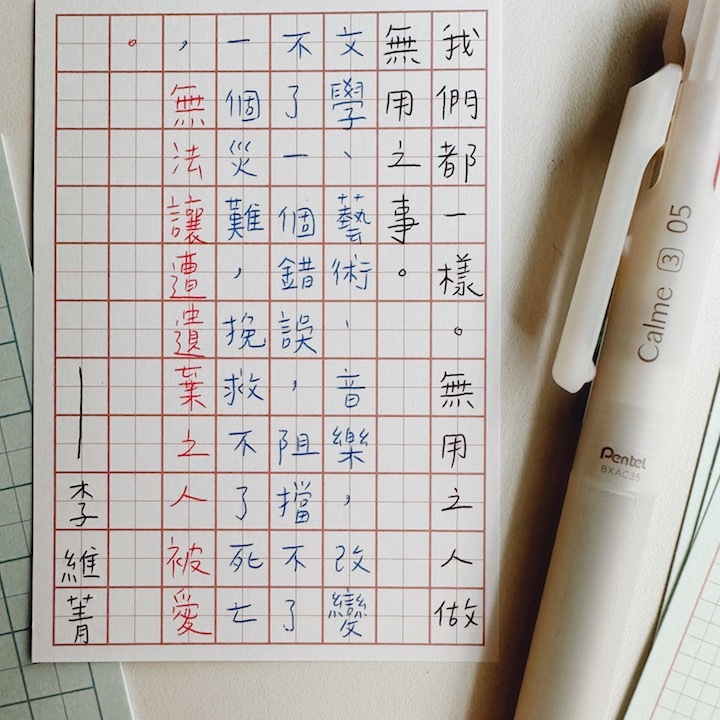 我們都一樣。無用之人做
無用之事。
文學、藝術、音樂，改變
不了一個錯誤，阻擋不了
一個災難，挽救不了死亡
，無法讓遭遺棄之人被愛
。
——李維菁
Calme 3 05
Pentel
BXAC35